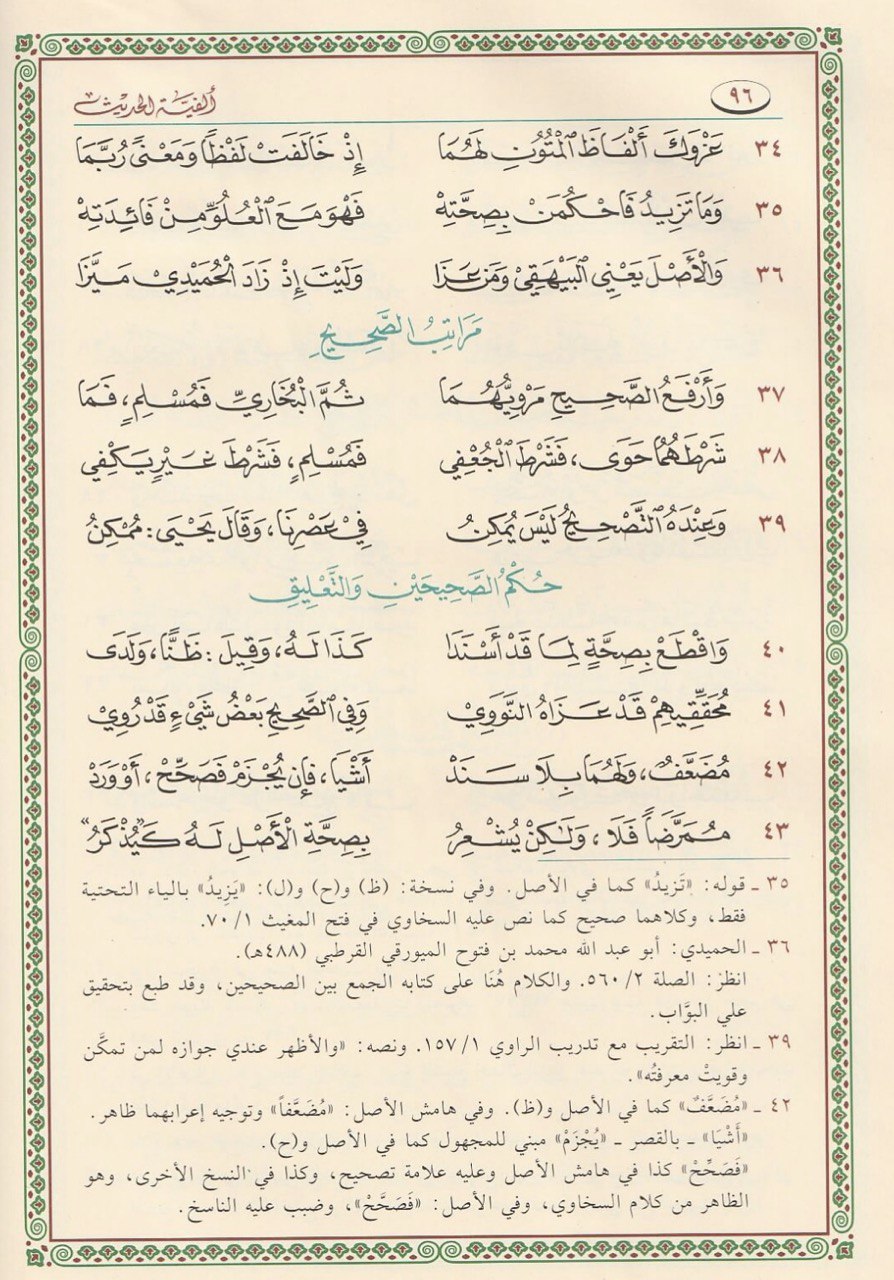 ٩٦ ألفية الحديث
٣٤ عَزْوَكَ أَلْفَاظَ الْمُتُونِ لَهُمَا إِذْ خَالَفَتْ لَفْظاً وَمَعْنىً رُبَّمَا
٣٥ وَمَا تَزِيدُ فَاحْكُمَنْ بِصِحَّتِهْ فَهْوَ مَعَ الْعُلُوِّ مِنْ فَائِدَتِهْ
٣٦ وَالْأَصْلَ يَعْنِي الْبَيْهَقِيْ وَمَنْ عَزَا وَلَيْتَ إِذْ زَادَ الْحُمَيْدِيْ مَيَّزَا
مَرَاتِبُ الصَّحِيحِ
٣٧ وَأَرْفَعُ الصَّحِيحِ مَرْوِيُّهُمَا ثُمَّ الْبُخَارِيُّ فَمُسْلِمٍ، فَمَا
٣٨ شَرْطَهُمَا حَوَى، فَشَرْطَ الْجُعْفِي فَمُسْلِمٍ، فَشَرْطَ غَيْرٍ يَكْفِي
٣٩ وَعِنْدَهُ التَّصْحِيحُ لَيْسَ يُمْكِنُ فِيْ عَصْرِنَا، وَقَالَ يَحْيَى: مُمْكِنُ
حُكْمُ الصَّحِيحَيْنِ وَالتَّعْلِيقِ
٤٠ وَاقْطَعْ بِصِحَّةٍ لِمَا قَدْ أَسْنَدَا كَذَا لَهُ، وَقِيلَ: ظَنًّا، وَلَدَى
٤١ مُحَقِّقِيهِمْ قَدْ عَزَاهُ النَّوَوِيْ وَفِي الصَّحِيحِ بَعْضُ شَيْءٍ قَدْ رُوِيْ
٤٢ مُضَعَّفٌ، وَلَهُمَا بِلَا سَنَدْ أَشْيَا، فَإِنْ يُجْزَمْ فَصَحِّحْ، أَوْ وَرَدْ
٤٣ مُمَرَّضاً فَلَا، وَلَكِنْ يُشْعِرُ بِصِحَّةِ الْأَصْلِ لَهُ كَ«يُذْكَرُ»
٣٥ ـ قوله: «تَزِيدُ» كما في الأصل. وفي نسخة: (ظ) و(ح) و(ل): «يَزِيدُ» بالياء التحتية
فقط، وكلاهما صحيح كما نص عليه السخاوي في فتح المغيث ٧٠/١.
٣٦ ـ الحميدي: أبو عبد الله محمد بن فتوح الميورقي القرطبي (٤٨٨هـ).
انظرْ: الصلة ٥٦٠/٢. والكلام هُنَا على كتابه الجمع بين الصحيحين، وقد طبع بتحقيق
علي البوَّاب.
٣٩ ـ انظر: التقريب مع تدريب الراوي ١٥٧/١. ونصه: «والأظهر عندي جوازه لمن تمكَّن
وقويتْ معرفتُه».
٤٢ ـ «مُضَعَّفٌ» كما في الأصل و(ظ). وفي هامش الأصل: «مُضَعَّفاً» وتوجيه إعرابهما ظاهر.
«أَشْيَا» ـ بالقصر ـ «يُجْزَمْ» مبني للمجهول كما في الأصل و(ح).
«فَصَحِّحْ» كذا في هامش الأصل وعليه علامة تصحيح، وكذا في النسخ الأخرى، وهو
الظاهر من كلام السخاوي، وفي الأصل: «فَصَحَّحْ»، وضبب عليه الناسخ.